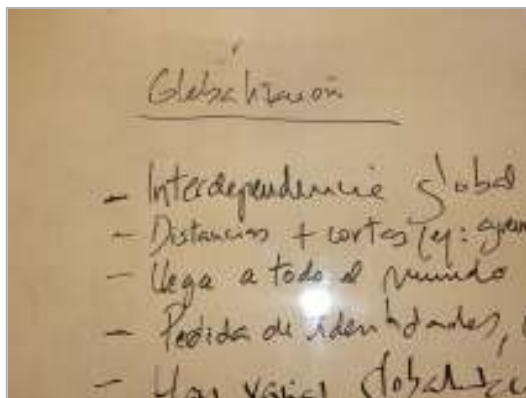 Globalización
- Interdependencia global
- Distancias + cortas (ej:
- Llega a todo el mundo
- Pédida de identidades,
- Hay varias globalizac